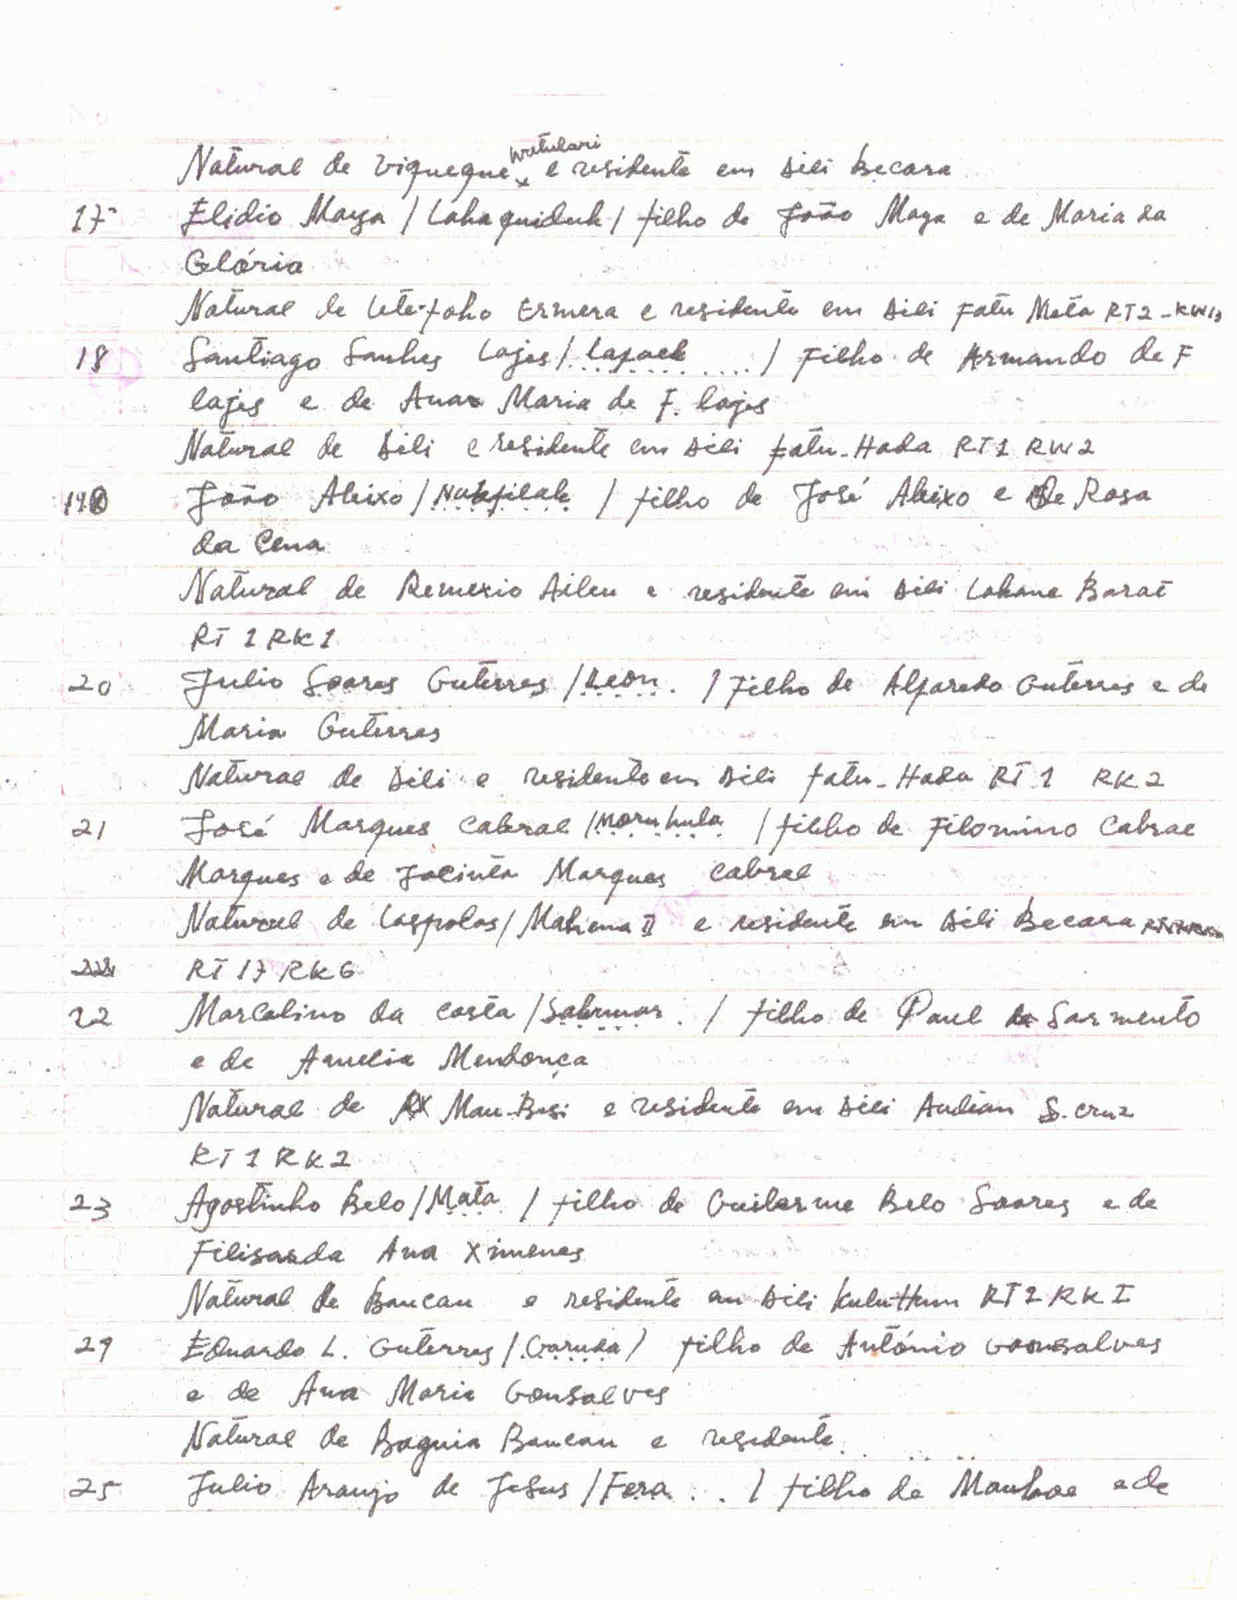 Natural de Viqueque watulari e residente em Dili Becora
17 Elidio Maya / Laha quiduk / filho de João Maya e de Maria da
Glória
Natural de Lete-foho Ermera e residente em Dili Fatu Meta RT2-RW13
18 Santiago Sanhes Lajes / Lapaek / Filho de Armando de F
lajes e de Ana Maria de F. lajes
Natural de Dili e residente em Dili fatu-Hada RT1 RW2
19 João Aleixo / Nakfilak / filho de José Aleixo e de Rosa
da Cena
Natural de Remexio Aileu e residente em Dili Lahane Barat
RT 1 RK 1
20 Julio Soares Guterres / Leon / Filho de Alfaredo Guterres e de
Maria Guterres
Natural de Dili e residente em Dili fatu-Hada RT 1 RK 2
21 José Marques Cabral / Moruhula / filho de Filomino Cabral
Marques e de Jacinta Marques Cabral
Natural de Laspolos / Mahena II e residente em Dili Becora
RT 17 RK 6
22 Marcelino da Costa / Sabumar / filho de Paul Sarmento
e de Amelia Mendonça
Natural de Mau-Besi e residente em Dili Audian S. cruz
RT 1 RK 2
23 Agostinho Belo / Mata / filho de Guilerme Belo Soares e de
Filisarda Ana Ximenes
Natural de Baucau e residente em Dili Kuluhun RT 2 RK I
24 Eduardo L. Guterres / Garuda / filho de António Gonsalves
e de Ana Maria Gonsalves
Natural de Baguia Baucau e residente
25 Julio Araujo de Jesus / Fera / filho de Mauloe e de